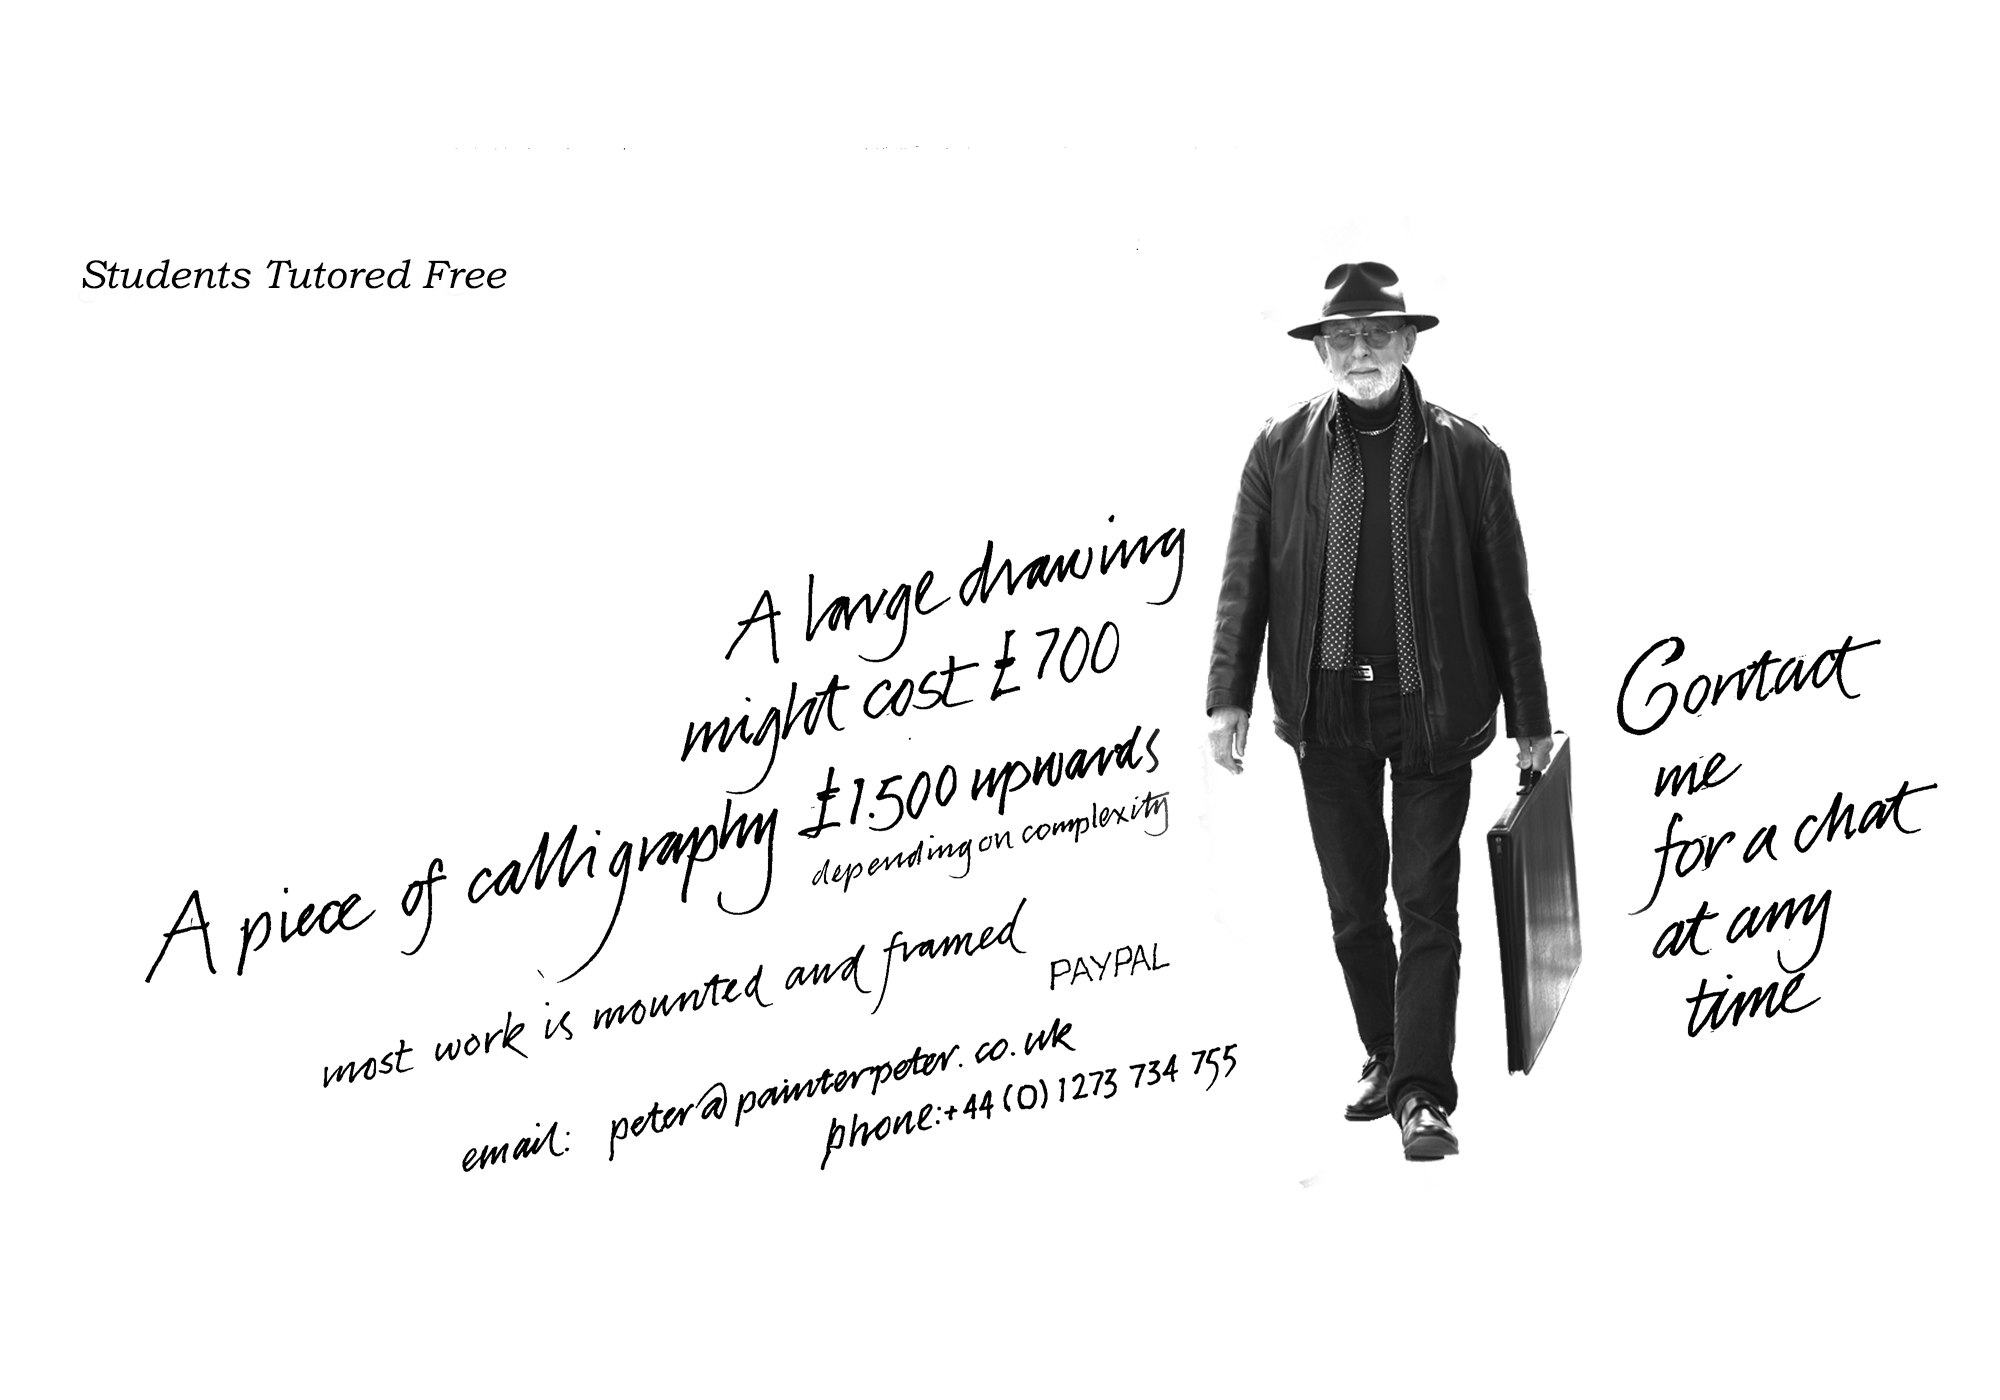 Students Tutored Free
A large drawing
might cost £700
A piece of calligraphy £1.500 upwards
depending on complexity
most work is mounted and framed
PAYPAL
email: peter@painterpeter.co.uk
phone:+44(0)1273 734 755
Contact
me
for a chat
at any
time